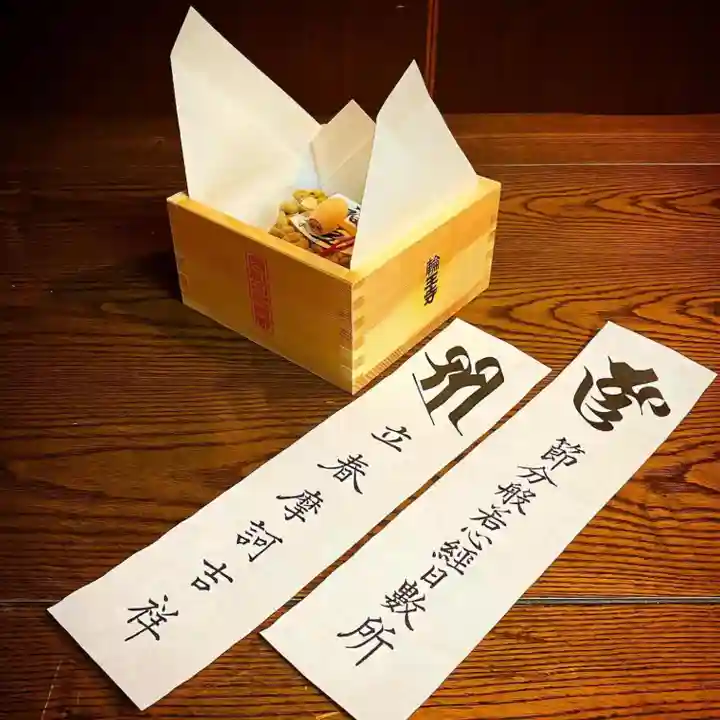 輪王寺
立春摩訶吉祥
節分般若心經日數所